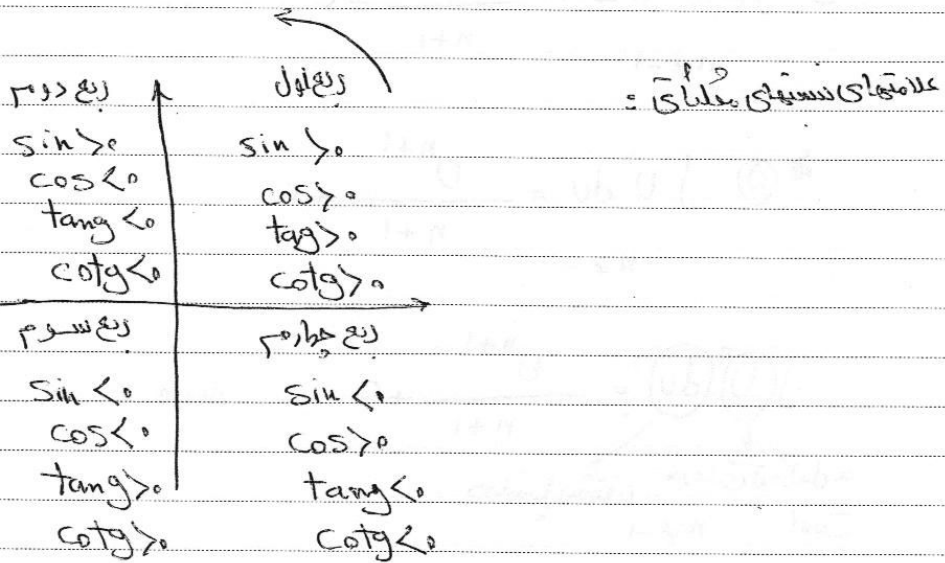 علامتهای نسبتهای مثلثاتی :
ربع اول
sin >۰
cos >۰
tag >۰
cotg >۰
ربع دوم
sin >۰
cos <۰
tang <۰
cotg <۰
ربع سوم
sin <۰
cos <۰
tang >۰
cotg >۰
ربع چهارم
sin <۰
cos >۰
tang <۰
cotg <۰